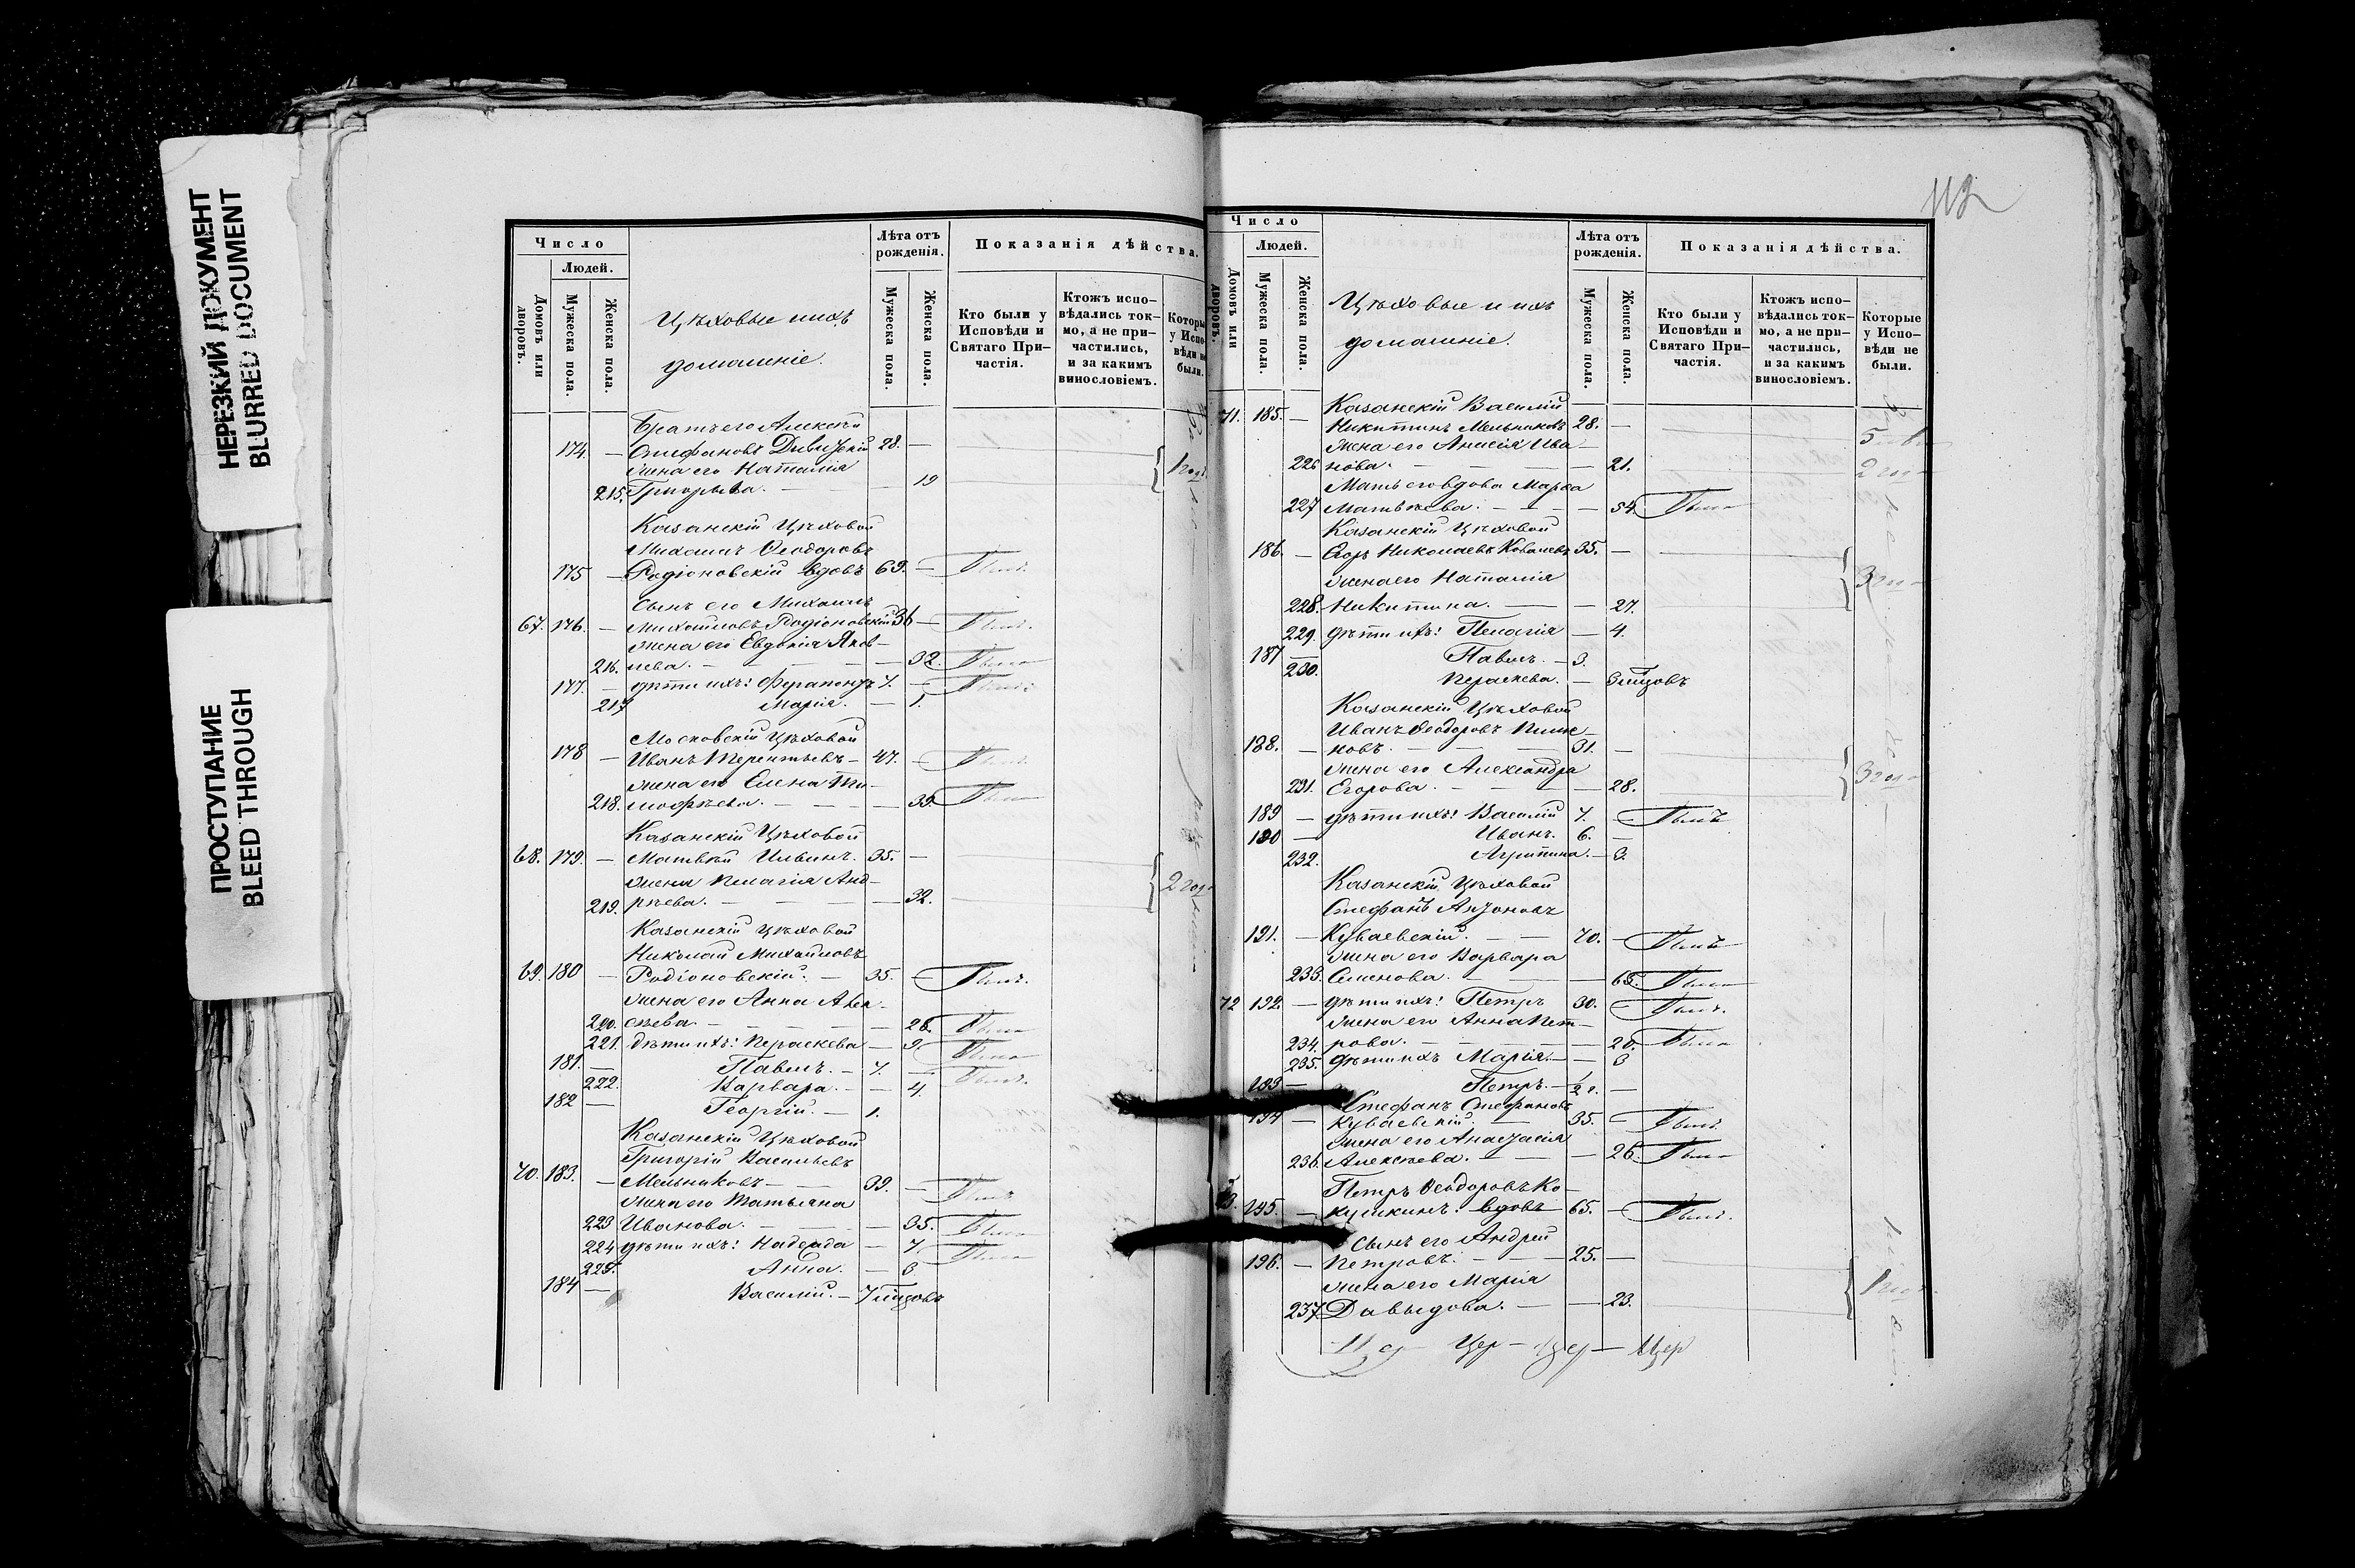 НЕРЕЗКИЙ ДОКУМЕНТ
BLURRED DOCUMENT
ПРОСТУПАНИЕ
BLEED THROUGH
Число
Людей.
Домовъ или дворовъ.
Мужеска пола.
Женска пола.
Цѣховые и ихъ
домашніе.
Лѣта отъ рожденія.
Мужеска пола.
Женска пола.
Показанія дѣйства.
Кто были у Исповѣди и Святаго Причастія.
Ктожъ исповѣдались токмо, а не причастились, и за какимъ винословіемъ.
Которы
у Испо
вѣди н
были.
Братъ его Алексѣй
174. — Стефановъ 28. —
жена его Наталія
215. Григорьева. — 19
Казанскій Цѣховой
Михаилъ Ѳеодоровъ
175 — Родіоновскій вдовъ 69. — Былъ.
Сынъ его Михаилъ
67. 176. — Михайловъ Родіоновскій 36 — Былъ.
жена его Евдокія Яков-
216. лева. — 32. Была
177. — дѣти ихъ: Ферапонтъ 7. — Былъ
217 Марія. — 1.
Московскій Цѣховой
178 — Иванъ Терентьевъ — 47. — Былъ.
жена его Елена Ти-
218. мофѣева. — 39. Была
Казанскій Цѣховой
68. 179. — Матвѣй Ильинъ. 35. —
жена Пелагія Анд-
219. рѣева. — 32.
2 го
Казанскій Цѣховой
Николай Михайловъ
69. 180 — Родіоновскій. — 35. — Былъ.
жена его Анна Алек-
220. сѣева. — 28. Была
221. дѣти ихъ: Параскева — 9. Была
181. — Павелъ. — 7. — Былъ.
222. Варвара. — 4.
182 — Георгій. — 1.
Казанскій Цѣховой
Григорій Васильевъ
70. 183. — Мельниковъ — 39. — Былъ
жена его Татьяна
223 Иванова. — 35. Была
224 дѣти ихъ: Надежда — 7. Была
225. Анна. — 3
184 — Василій. — 7 мѣсяцовъ
112
Число
Людей.
Домовъ или дворовъ.
Мужеска пола.
Женска пола.
Цѣховые и ихъ
домашніе.
Лѣта отъ рожденія.
Мужеска пола.
Женска пола.
Показанія дѣйства.
Кто были у Исповѣди и Святаго Причастія.
Ктожъ исповѣдались токмо, а не причастились, и за какимъ винословіемъ.
Которые у Исповѣди не были.
71. 185. — Казанскій Василій
Никитинъ Мельниковъ 28. —
жена его Анисія Ива-
226 нова. — 21.
Мать его вдова Марѳа
227 Матвѣева. — 54. Была
Казанскій Цѣховой
186. — Егоръ Николаевъ Ковалевъ 35. —
жена его Наталія
228. Никитина. — 27.
229. дѣти ихъ: Пелагія — 4.
187 — Павелъ. — 3.
230. Параскева. — 3 мѣсяцовъ
Казанскій Цѣховой
Иванъ Ѳеодоровъ
188. — новъ. — 31. —
жена его Александра
231. Егорова. — 28.
189 — дѣти ихъ: Василій 7. — Былъ
190 — Иванъ. 6. —
232. Агрипина. — 3.
Казанскій Цѣховой
Стефанъ Антоновъ
191. — Куваевскій. — 70. — Былъ
жена его Варвара
233. Семенова. — 65. Была
72 192. — дѣти ихъ: Петръ 30. — Былъ.
жена его Анна Пет-
234. рова. — 20. Была
235. дѣти ихъ Марія. — 3
193 — Петръ. —
194 — Стефанъ Стефановъ
Куваевскій. — 35. — Былъ.
жена его Анастасія
236. Алексѣева. — 26. Была
Петръ Ѳеодоровъ Ко-
195. — кушкинъ. вдовъ 65. — Былъ.
Сынъ его Андрей
196. — Петровъ. — 25. —
жена его Марія
237 Давыдова. — 23.